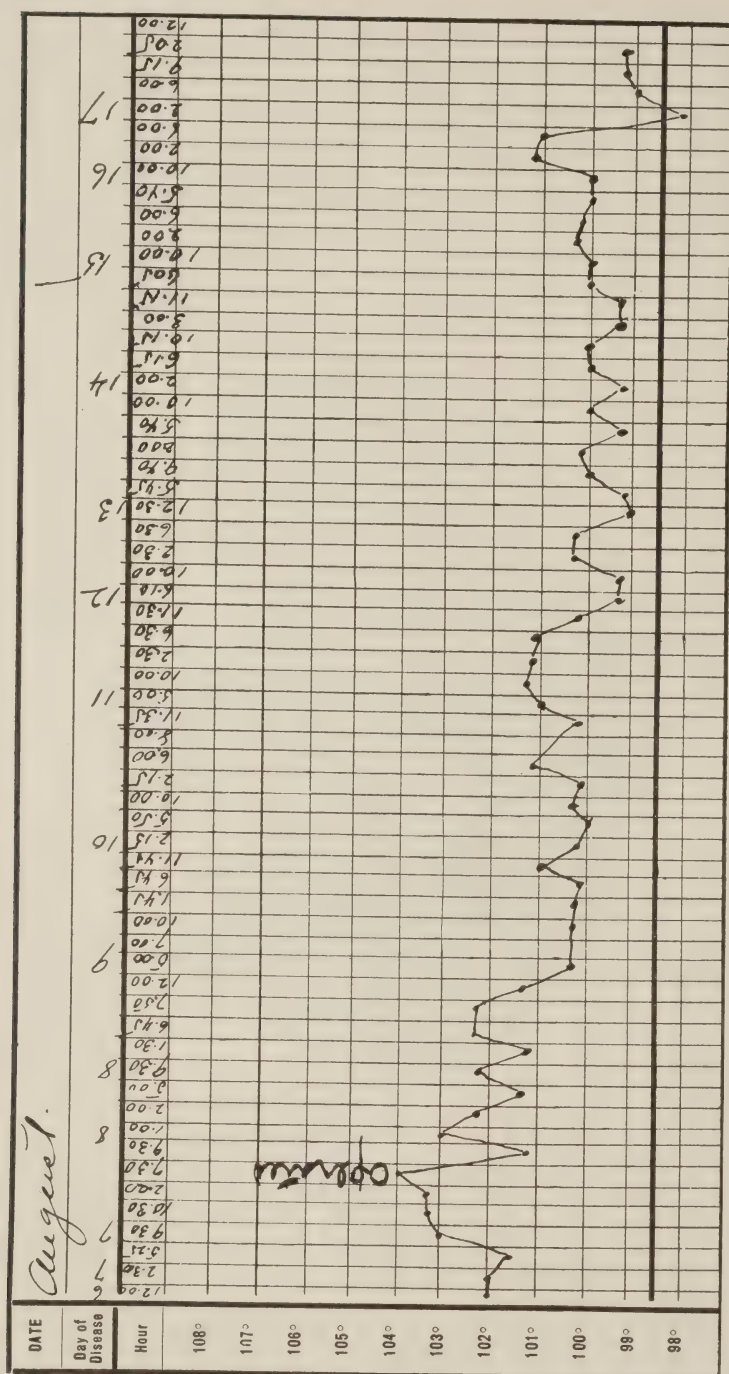 DATE August.
Day of Disease 6 7 7 8 8 9 10 11 12 13 14 15 16 17
Hour 12.00 2.30 5.25 9.30 10.30 2.20 7.30 9.30 1.00 2.00 5.00 9.30 1.30 6.45 7.50 12.00 5.00 7.00 10.00 1.45 6.45 11.44 2.15 5.50 10.00 2.15 6.00 8.00 11.35 5.00 10.00 2.30 6.30 11.30 6.10 10.00 2.30 6.30 12.30 5.45 9.40 2.00 5.40 10.00 2.00 6.15 10.15 3.00 11.15 6.05 10.00 2.00 6.00 5.40 10.00 2.00 6.00 2.00 6.00 9.15 2.05 12.00
108°
107°
106°
105°
104°
103°
102°
101°
100°
99°
98°